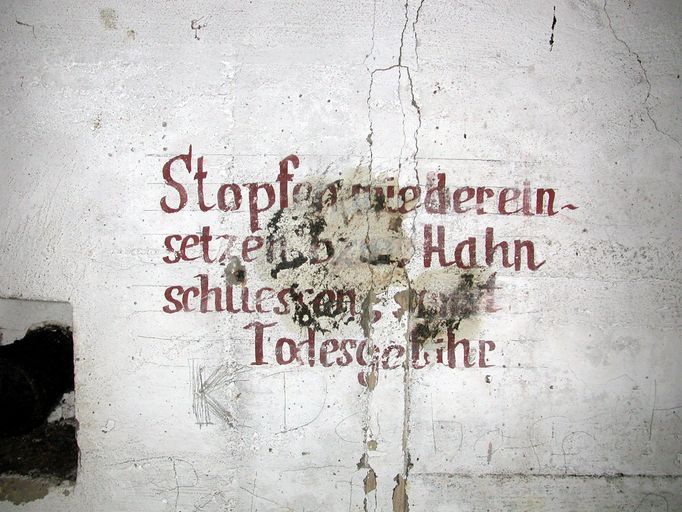 Stopfen wiederein-
setzen bzw. Hahn
schliessen, sonst
Todesgefahr